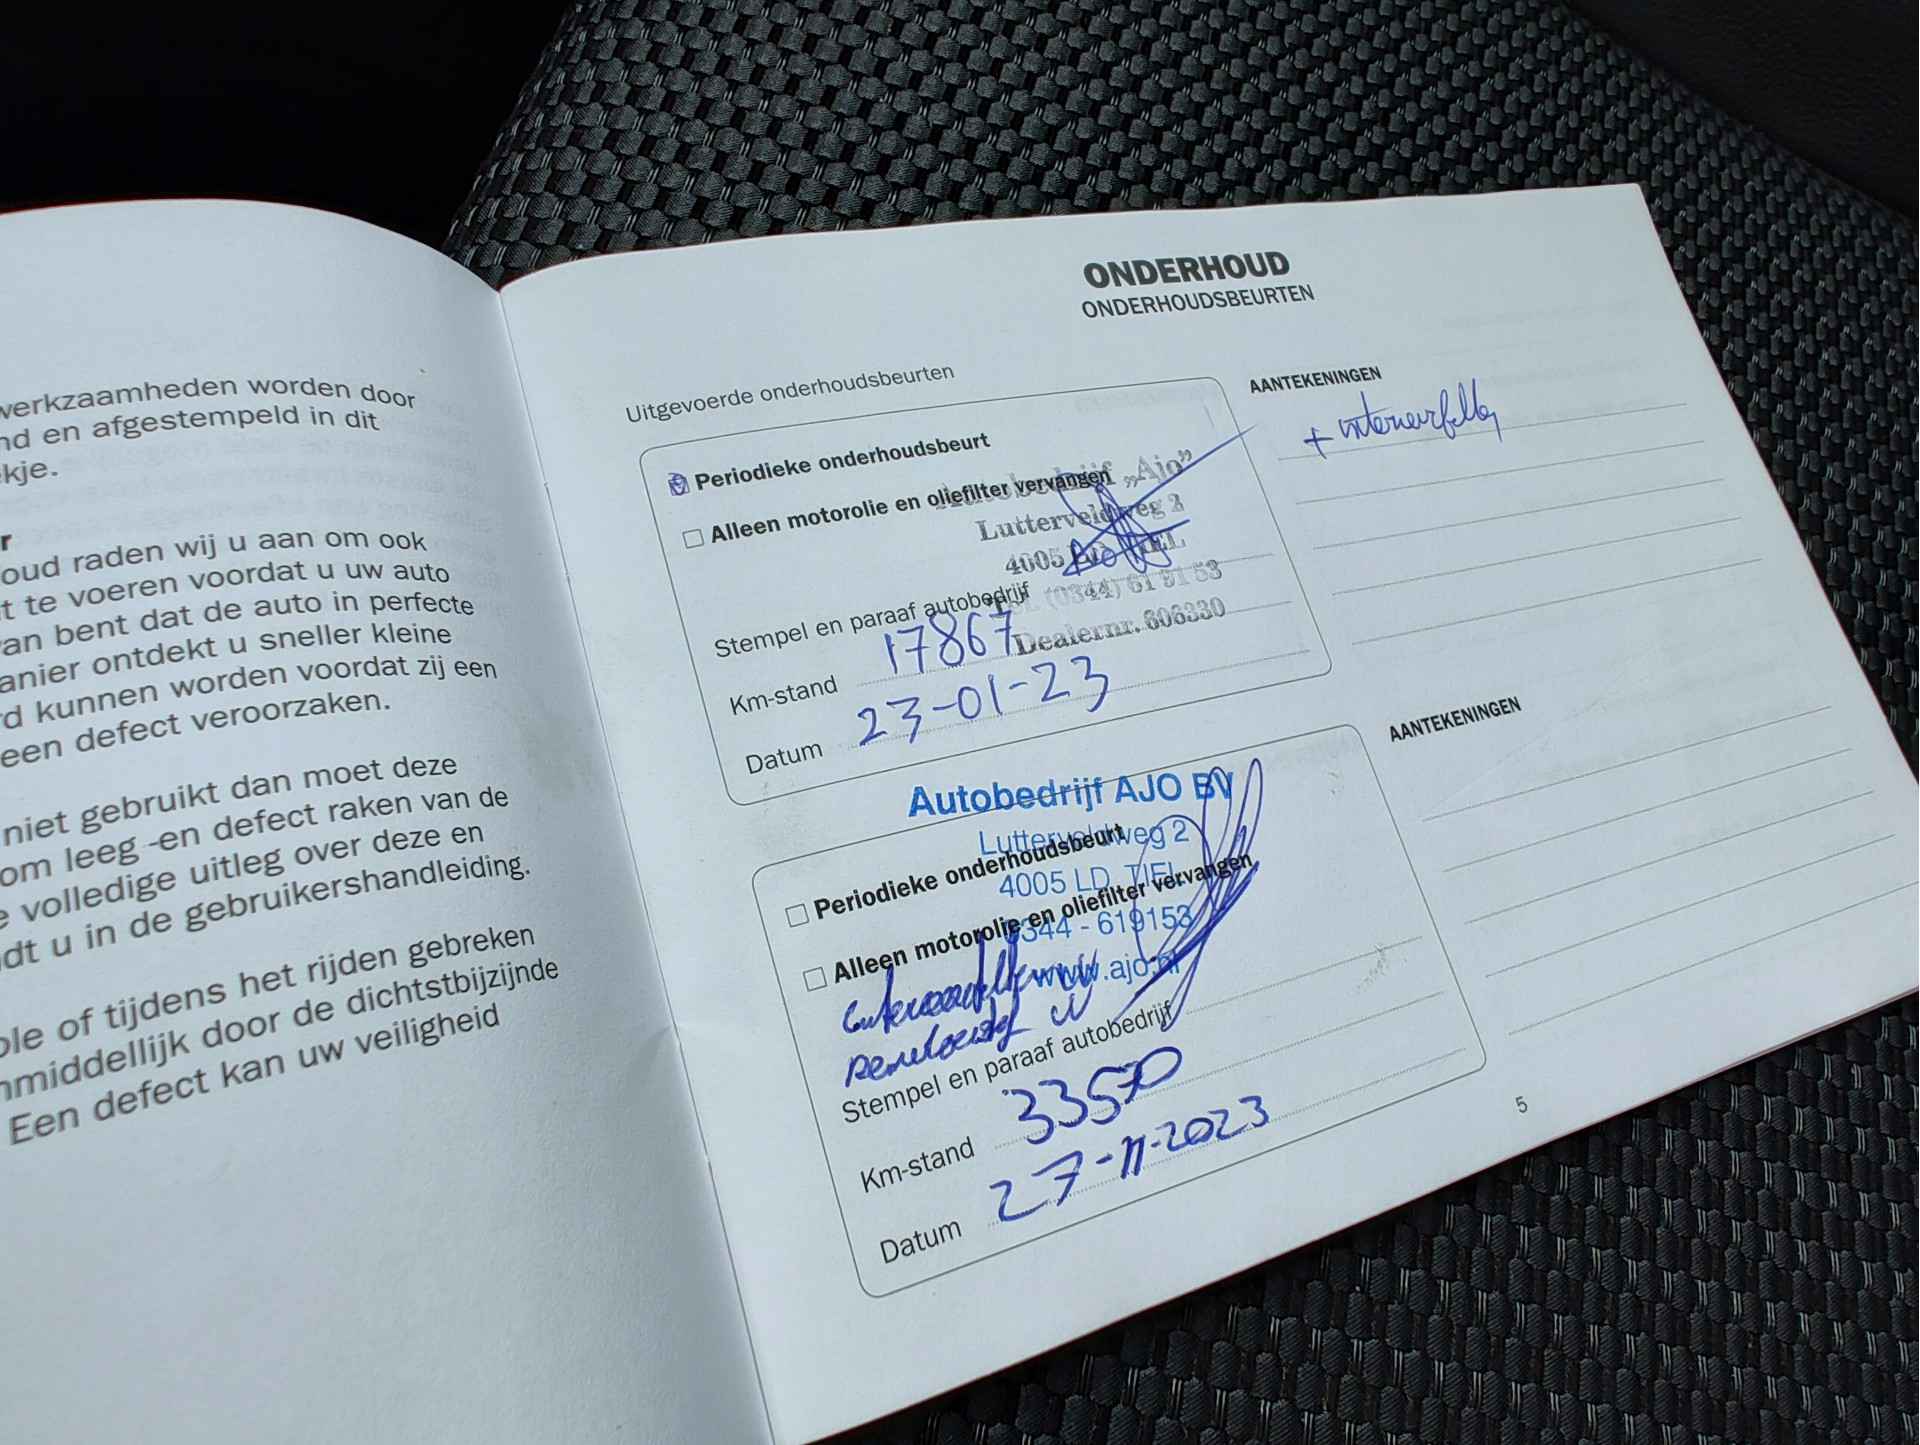 werkzaamheden worden door
nd en afgestempeld in dit
ekje.
r
oud raden wij u aan om ook
t te voeren voordat u uw auto
van bent dat de auto in perfecte
anier ontdekt u sneller kleine
rd kunnen worden voordat zij een
een defect veroorzaken.
niet gebruikt dan moet deze
om leeg -en defect raken van de
e volledige uitleg over deze en
dt u in de gebruikershandleiding.
ole of tijdens het rijden gebreken
nmiddellijk door de dichtstbijzijnde
Een defect kan uw veiligheid
ONDERHOUD
ONDERHOUDSBEURTEN
Uitgevoerde onderhoudsbeurten
Periodieke onderhoudsbeurt
Alleen motorolie en oliefilter vervangen
Autobedrijf „Ajo”
Lutterveldweg 2
4005 LD TIEL
Tel. (0344) 61 91 53
Dealernr. 606330
Stempel en paraaf autobedrijf
Km-stand 17867
Datum 23-01-23
AANTEKENINGEN
+ interieurfilter
Autobedrijf AJO BV
Lutterveldweg 2
4005 LD TIEL
0344 - 619153
www.ajo.nl
Periodieke onderhoudsbeurt
Alleen motorolie en oliefilter vervangen
Stempel en paraaf autobedrijf
Km-stand 33570
Datum 27-11-2023
AANTEKENINGEN
5